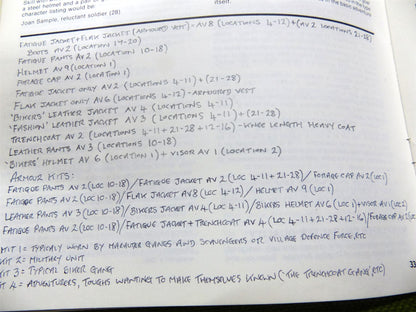 Skill with
a steel helmet and a pair of
character listing would be:
itself.
Joan Sample, reluctant soldier (28)
FATIGUE JACKET + FLAK JACKET (ARMOURED VEST) - AV8 (LOCATIONS 4-12) + (AV2 LOCATIONS 21-28)
BOOTS AV2 (LOCATION 17-20)
FATIGUE PANTS AV2 (LOCATION 10-18)
HELMET AV9 (LOCATION 1)
FORAGE CAP AV2 (LOCATION 1)
FATIGUE JACKET ONLY AV2 (LOCATIONS 4-11) + (21-28)
FLAK JACKET ONLY AV6 (LOCATIONS 4-12) - ARMOURED VEST
'BIKERS' LEATHER JACKET AV4 (LOCATIONS 4-11)
'FASHION' LEATHER JACKET AV3 (LOCATIONS 4-11) + (21-28)
TRENCHCOAT AV2 (LOCATIONS 4-11 + 21-28 + 12-16) - KNEE LENGTH HEAVY COAT
LEATHER PANTS AV3 (LOCATIONS 10-18)
'BIKERS' HELMET AV6 (LOCATION 1) + VISOR AV1 (LOCATION 2)
ARMOUR KITS:
FATIGUE PANTS AV2 (LOC 10-18) / FATIGUE JACKET AV2 (LOC 4-11 + 21-28) / FORAGE CAP AV2 (LOC 1)
FATIGUE PANTS AV2 (LOC 10-18) / FLAK JACKET AV8 (LOC 4-12) / HELMET AV9 (LOC 1)
LEATHER PANTS AV3 (LOC 10-18) / BIKERS JACKET AV4 (LOC 4-11) / BIKERS HELMET AV6 (LOC 1) + VISOR AV1 (LOC 2)
FATIGUE PANTS AV2 (LOC 10-18) / FATIGUE JACKET + TRENCHCOAT AV4 (LOC 4-11 + 21-28 + 12-16) / FORAGE CAP AV2
KIT 1 = TYPICALLY WORN BY MARAUDER GANGS AND SCAVENGERS OR VILLAGE DEFENCE FORCE, ETC
KIT 2 = MILITARY UNIT
KIT 3 = TYPICAL BIKER GANG
KIT 4 = ADVENTURERS, TOUGHS WANTING TO MAKE THEMSELVES KNOWN ('THE TRENCHCOAT GANG', ETC)
33